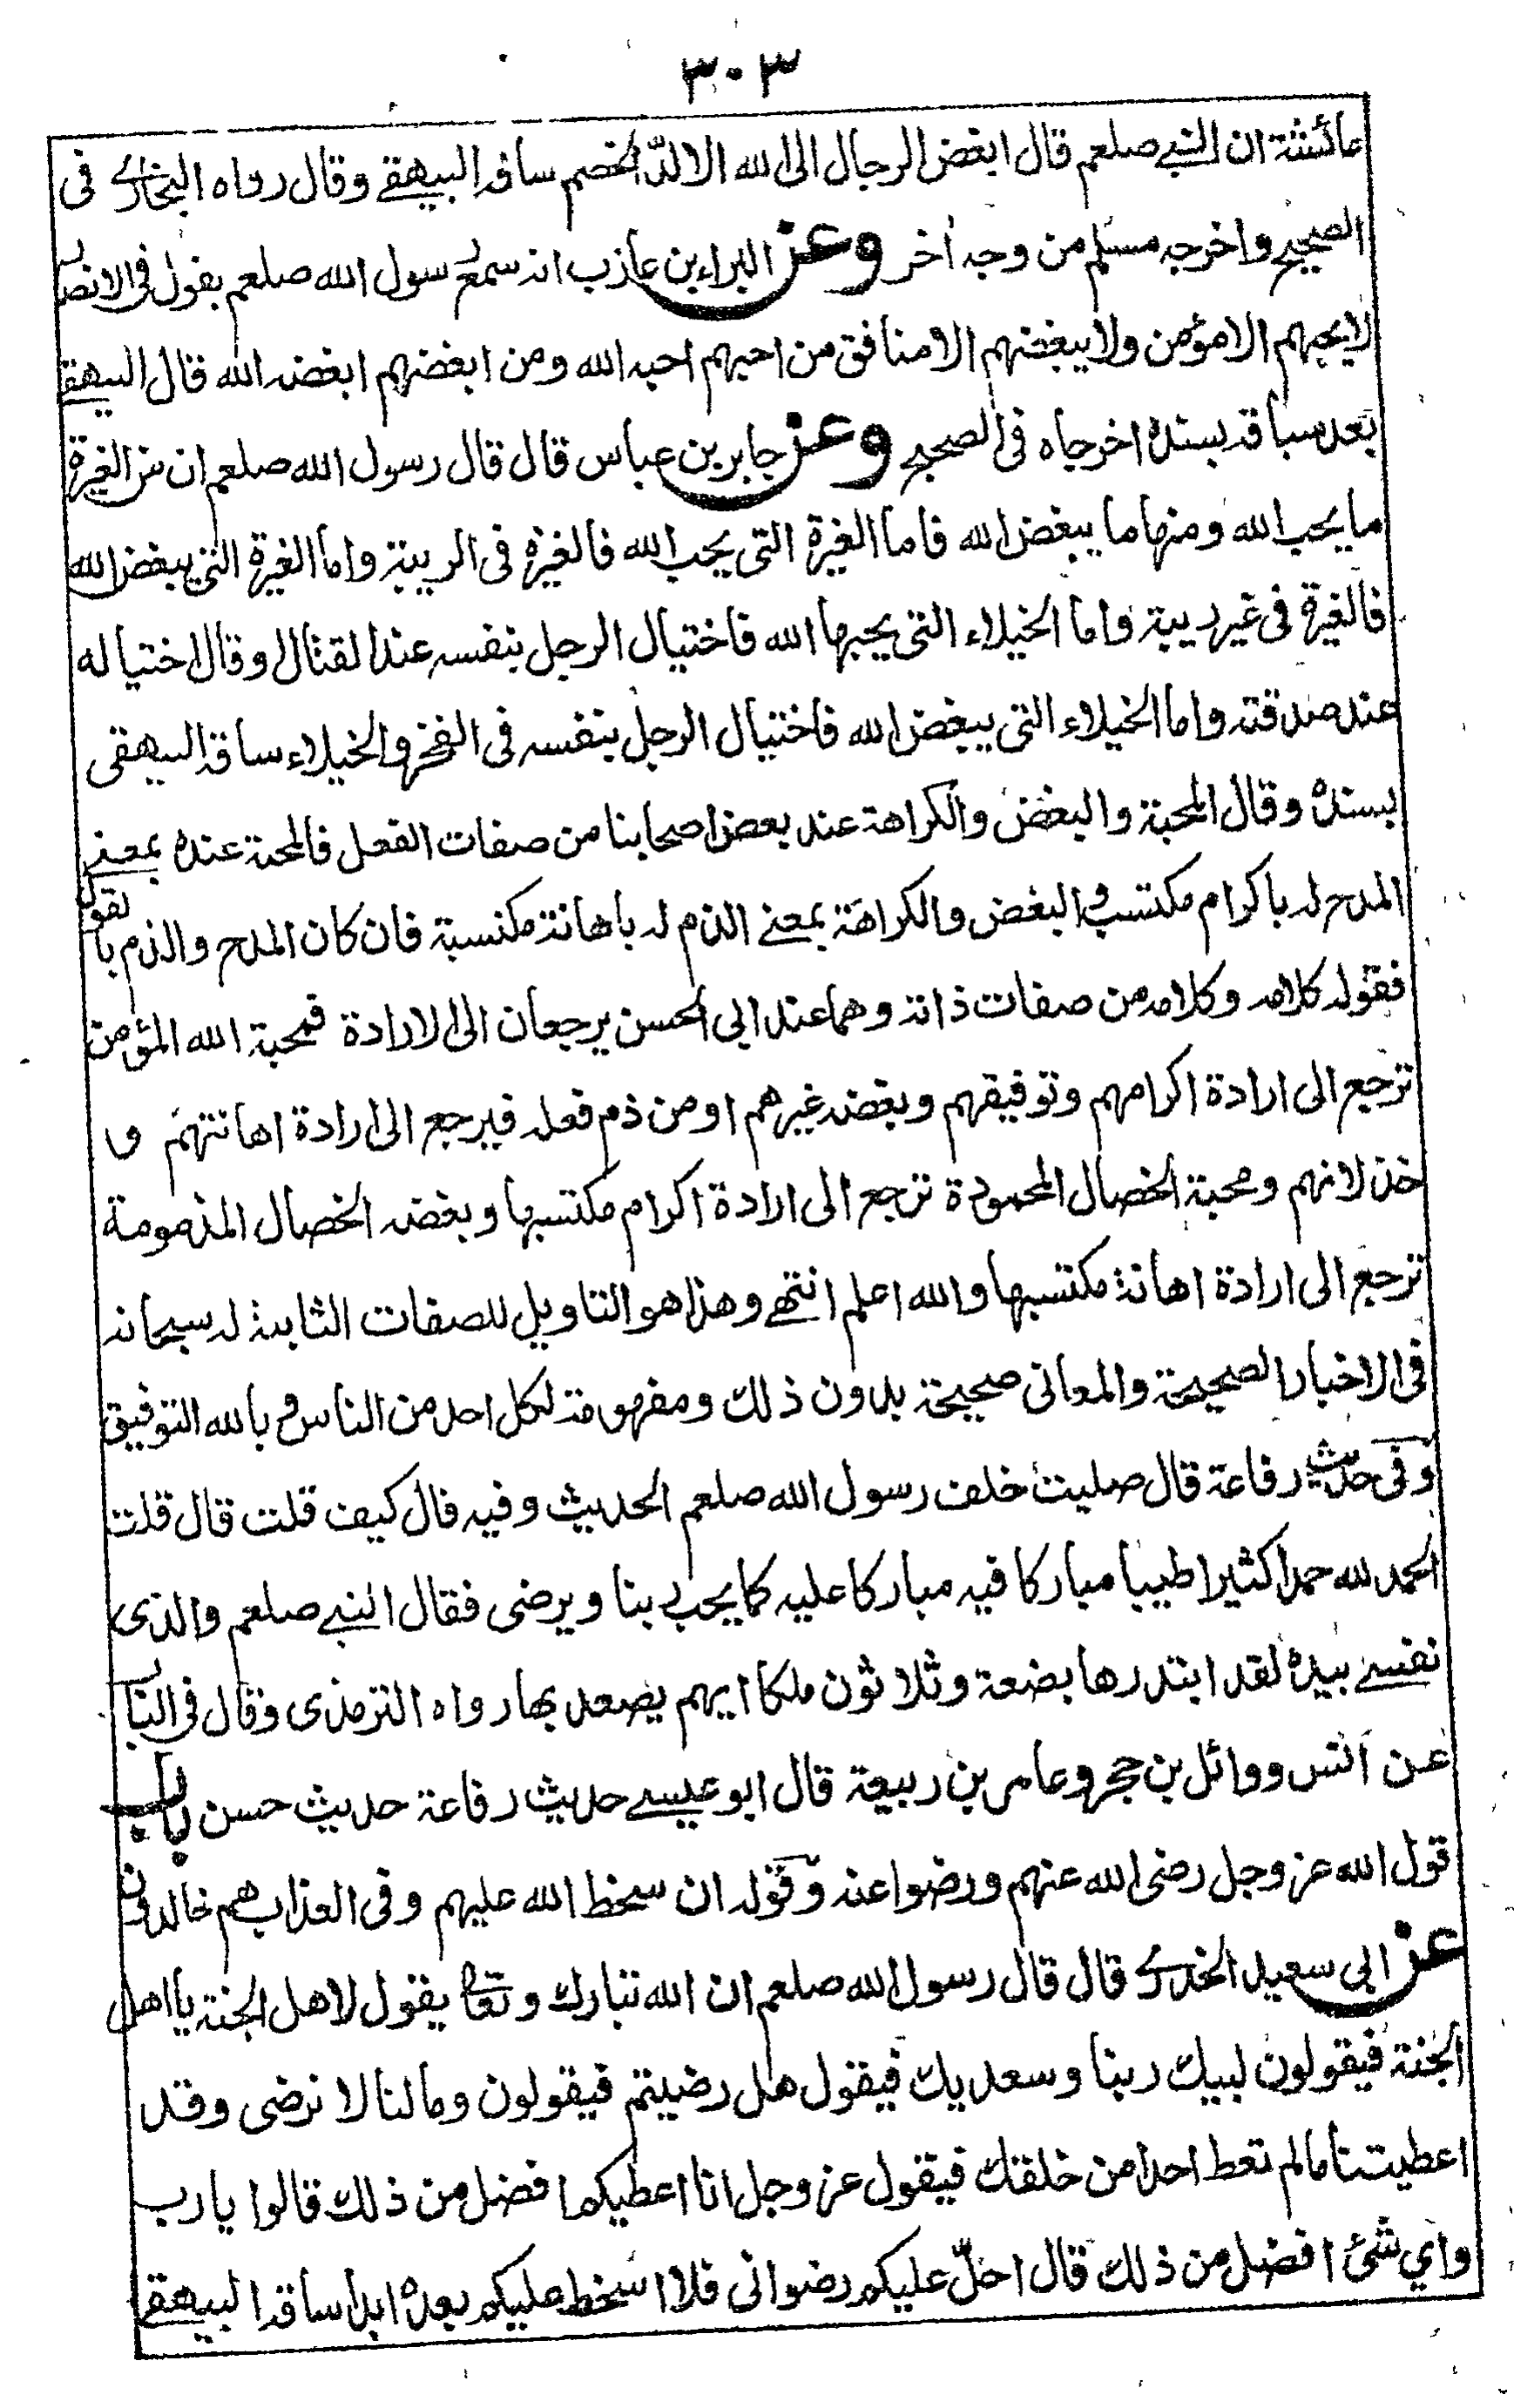 ٣٠٣
عائشة ان النبي صلعم قال ابغض الرجال الى الله الالدّ الخصم ساقه البيهقي وقال رواه البخاري في
الصحيح واخرجه مسلم من وجه اخر وعن البراء بن عازب انه سمع رسول الله صلعم يقول في الانصار
لا يحبهم الا مؤمن ولا يبغضهم الا منافق من احبهم احبه الله ومن ابغضهم ابغضه الله قال البيهقي
بعد سياقه بسنده اخرجاه في الصحيح وعن جابر بن عباس قال قال رسول الله صلعم ان من الغيرة
ما يحب الله ومنها ما يبغض الله فاما الغيرة التي يحب الله فالغيرة في الريبة واما الغيرة التي يبغض الله
فالغيرة في غير ريبة واما الخيلاء التي يحبها الله فاختيال الرجل بنفسه عند القتال او قال اختياله
عند صدقته واما الخيلاء التي يبغض الله فاختيال الرجل بنفسه في الفخر والخيلاء ساقه البيهقى
بسنده وقال المحبة والبغض والكراهة عند بعض اصحابنا من صفات الفعل فالمحبة عنده بمعنى
المدح له باكرام مكتسبه والبغض والكراهة بمعنى الذم له باهانة مكتسبة فان كان المدح والذم بالقول
فقوله كلامه وكلامه من صفات ذاته وهما عند ابي الحسن يرجعان الى الارادة فمحبة الله المؤمن
ترجع الى ارادة اكرامهم وتوفيقهم وبغضه غيرهم او من ذم فعله فيرجع الى ارادة اهانتهم و
خذلانهم ومحبة الخصال المحمودة ترجع الى ارادة اكرام مكتسبها وبغضه الخصال المذمومة
ترجع الى ارادة اهانة مكتسبها والله اعلم انتهى وهذا هو التاويل للصفات الثابتة له سبحانه
في الاخبار الصحيحة والمعانى صحيحة بدون ذلك ومفهومة لكل احد من الناس وبالله التوفيق
وفي حديث رفاعة قال صليت خلف رسول الله صلعم الحديث وفيه قال كيف قلت قال قلت
الحمد لله حمدا كثيرا طيبا مباركا فيه مباركا عليه كما يحب ربنا ويرضى فقال النبي صلعم والذى
نفسي بيده لقد ابتدرها بضعة وثلاثون ملكا ايهم يصعد بها رواه الترمذى وقال في الباب
عن انس ووائل بن حجر وعامر بن ربيعة قال ابو عيسى حديث رفاعة حديث حسن باب
قول الله عز وجل رضي الله عنهم ورضوا عنه وقوله ان سخط الله عليهم وفي العذاب هم خالدون
عن ابي سعيد الخدري قال قال رسول الله صلعم ان الله تبارك وتعالى يقول لاهل الجنة يا اهل
الجنة فيقولون لبيك ربنا وسعديك فيقول هل رضيتم فيقولون وما لنا لا نرضى وقد
اعطيتنا ما لم تعط احدا من خلقك فيقول عز وجل انا اعطيكم افضل من ذلك قالوا يا رب
واي شئ افضل من ذلك قال احلّ عليكم رضوانى فلا اسخط عليكم بعده ابدا ساقه البيهقي